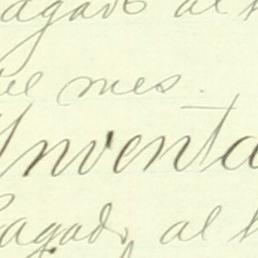 Pagado al
el mes.
Inventa
Pagado al